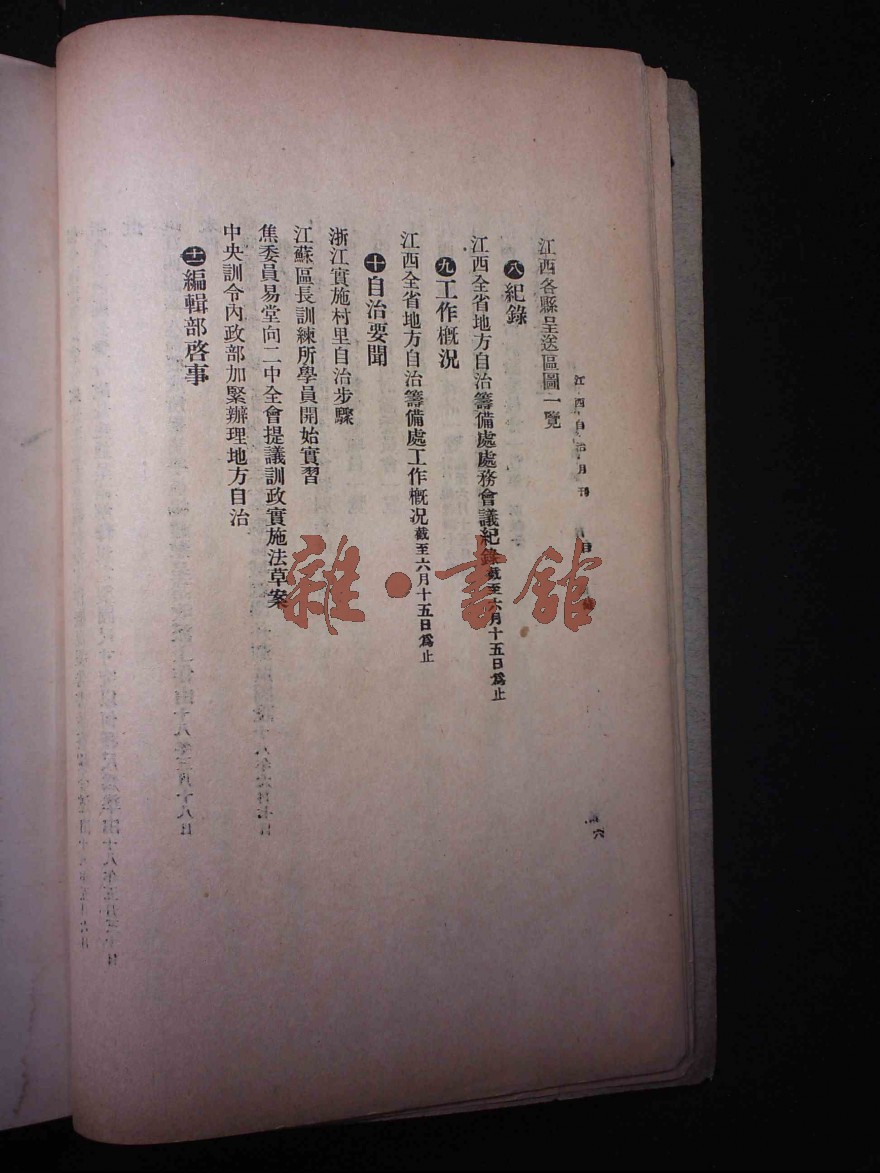 江西自治月刊　目錄
六
江西各縣呈送區圖一覽
八紀錄
江西全省地方自治籌備處處務會議紀錄截至六月十五日爲止
九工作概況
江西全省地方自治籌備處工作概況截至六月十五日爲止
十自治要聞
浙江實施村里自治步驟
江蘇區長訓練所學員開始實習
焦委員易堂向二中全會提議訓政實施法草案
中央訓令內政部加緊辦理地方自治
十一編輯部啓事
雜·書館